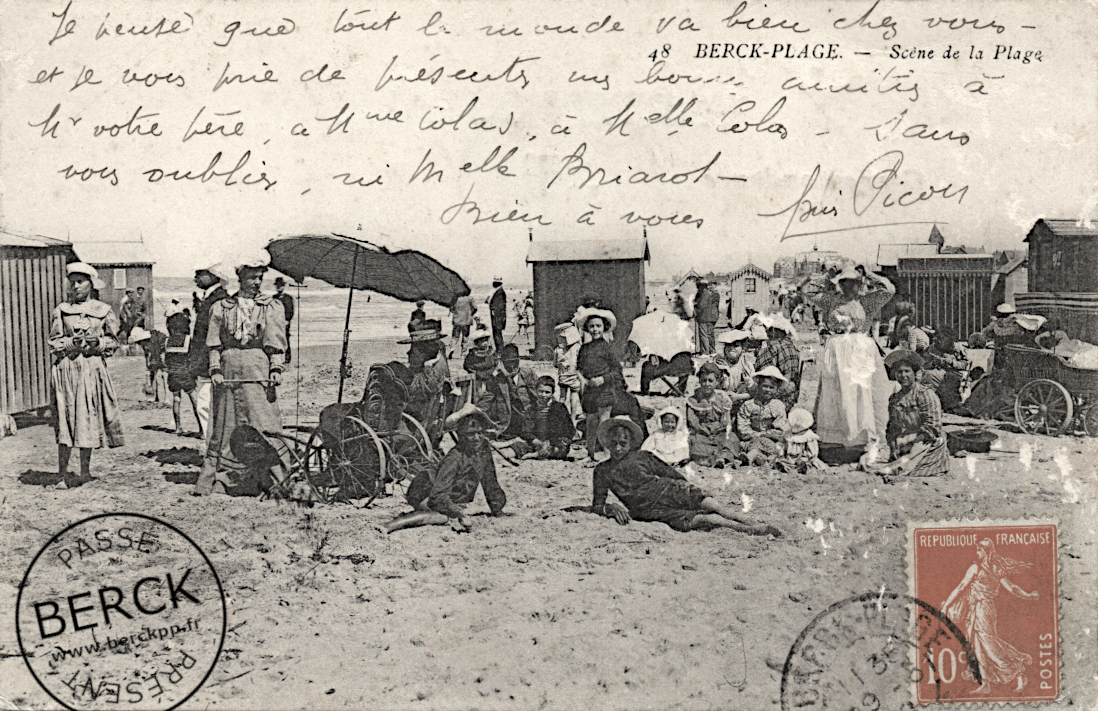 Je pense que tout le monde va bien chez vous -
48 BERCK-PLAGE. — Scène de la Plage
et je vous prie de présenter mes bonnes amitiés à
Mr votre père, à Mme Colas, à Melle Colas - Sans
vous oublier, ni Melle Briarot -
Bien à vous
Picon
PASSÉ
BERCK
www.berckpp.fr
PRÉSENT
REPUBLIQUE FRANÇAISE
10c
POSTES
PLAGE